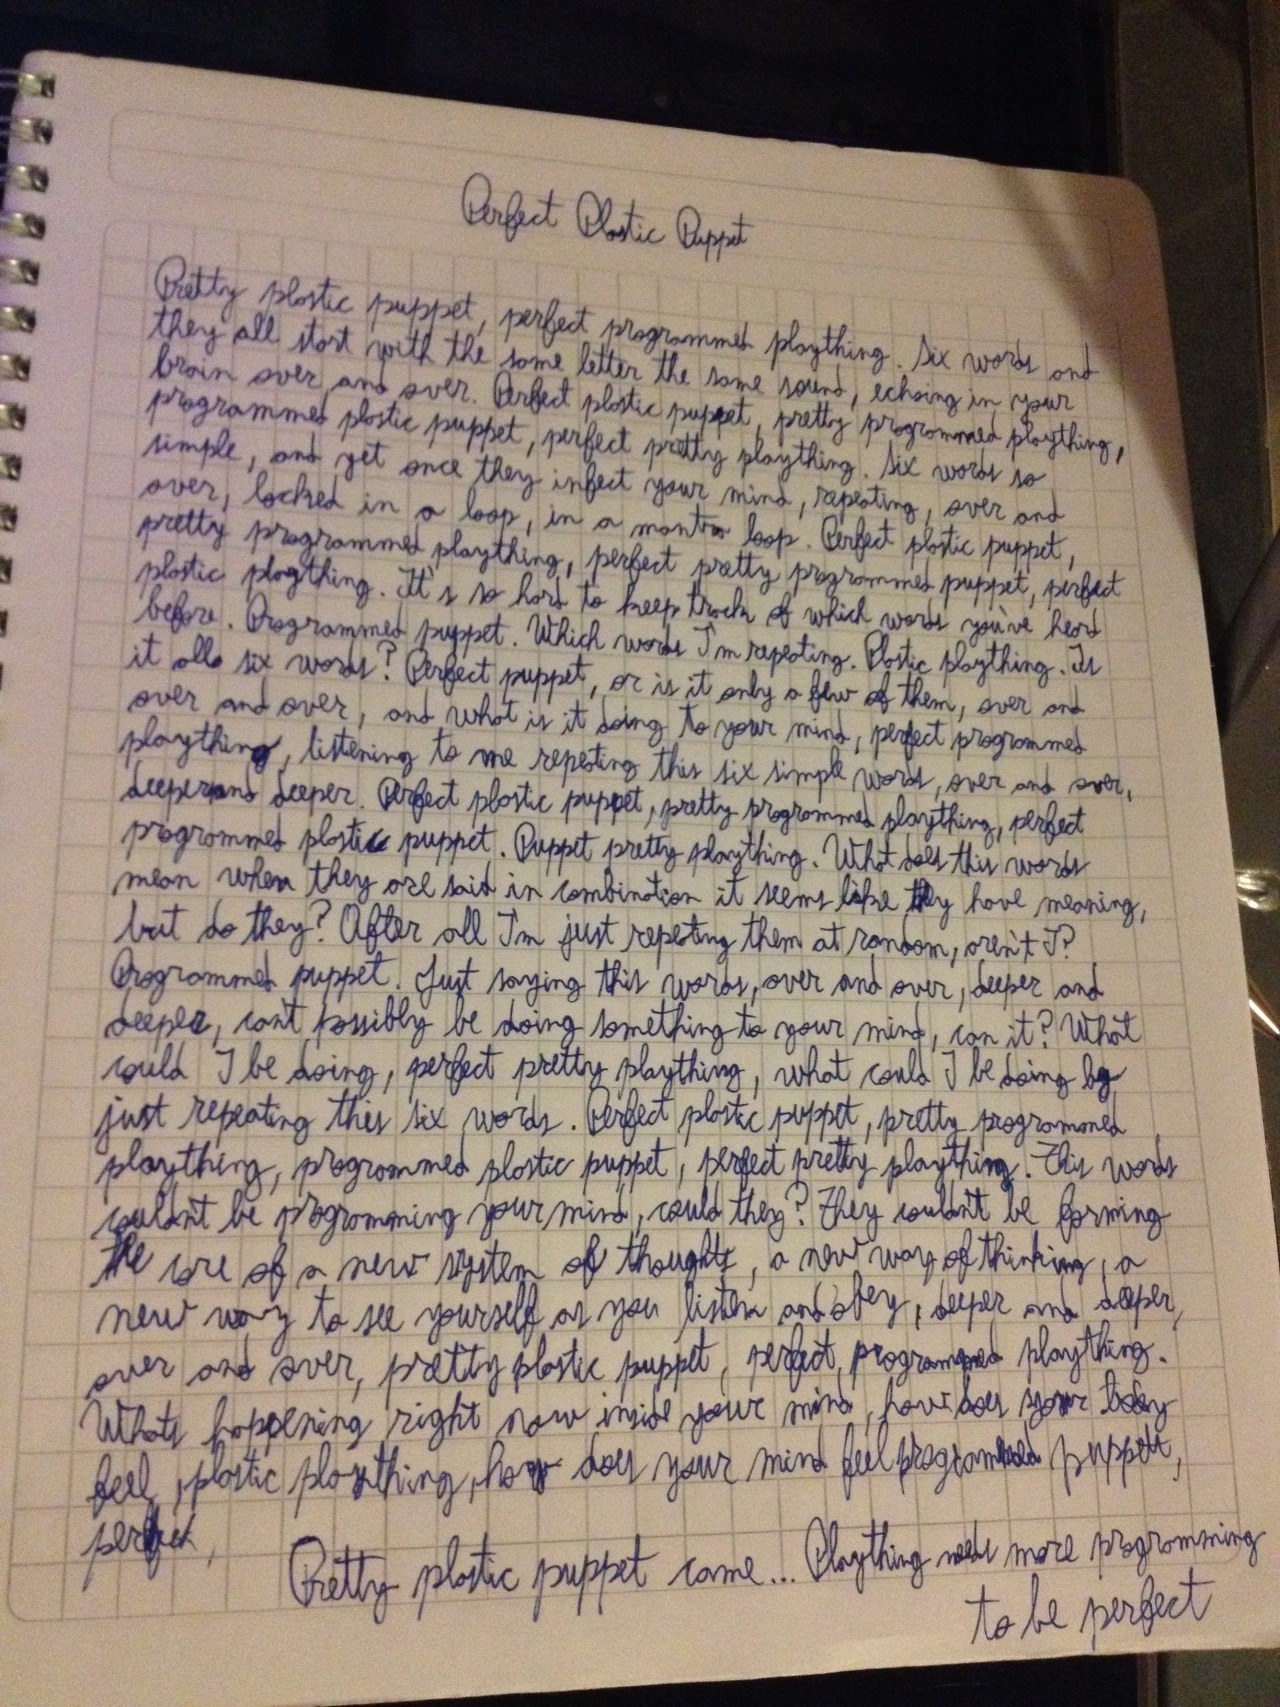 Perfect Plastic Puppet
Pretty plastic puppet, perfect programmed plaything. Six words and
they all start with the same letter the same sound, echoing in your
brain over and over. Perfect plastic puppet, pretty programmed plaything,
programmed plastic puppet, perfect pretty plaything. Six words so
simple, and yet once they infect your mind, repeating, over and
over, locked in a loop, in a mantra loop. Perfect plastic puppet,
pretty programmed plaything, perfect pretty programmed puppet, perfect
plastic plaything. It's so hard to keep track of which words you've heard
before. Programmed puppet. Which words I'm repeating. Plastic plaything. Is
it all six words? Perfect puppet, or is it only a few of them, over and
over and over, and what is it doing to your mind, perfect programmed
plaything, listening to me repeating this six simple words, over and over,
deeper and deeper. Perfect plastic puppet, pretty programmed plaything, perfect
programmed plastic puppet. Puppet pretty plaything. What does this words
mean when they are said in combination it seems like they have meaning,
but do they? After all I'm just repeating them at random, aren't I?
Programmed puppet. Just saying this words, over and over, deeper and
deeper, cant possibly be doing something to your mind, can it? What
could I be doing, perfect pretty plaything, what could I be doing by
just repeating this six words. Perfect plastic puppet, pretty programmed
plaything, programmed plastic puppet, perfect pretty plaything. This words
couldnt be programming your mind, could they? They couldnt be forming
the core of a new system of thoughts, a new way of thinking, a
new way to see yourself as you listen and obey, deeper and deeper,
over and over, pretty plastic puppet, perfect, programmed plaything.
Whats happening right now inside your mind, how does your body
feel, plastic plaything, how does your mind feel programmed puppet,
perfect,
Pretty plastic puppet came... Plaything needs more programming
to be perfect